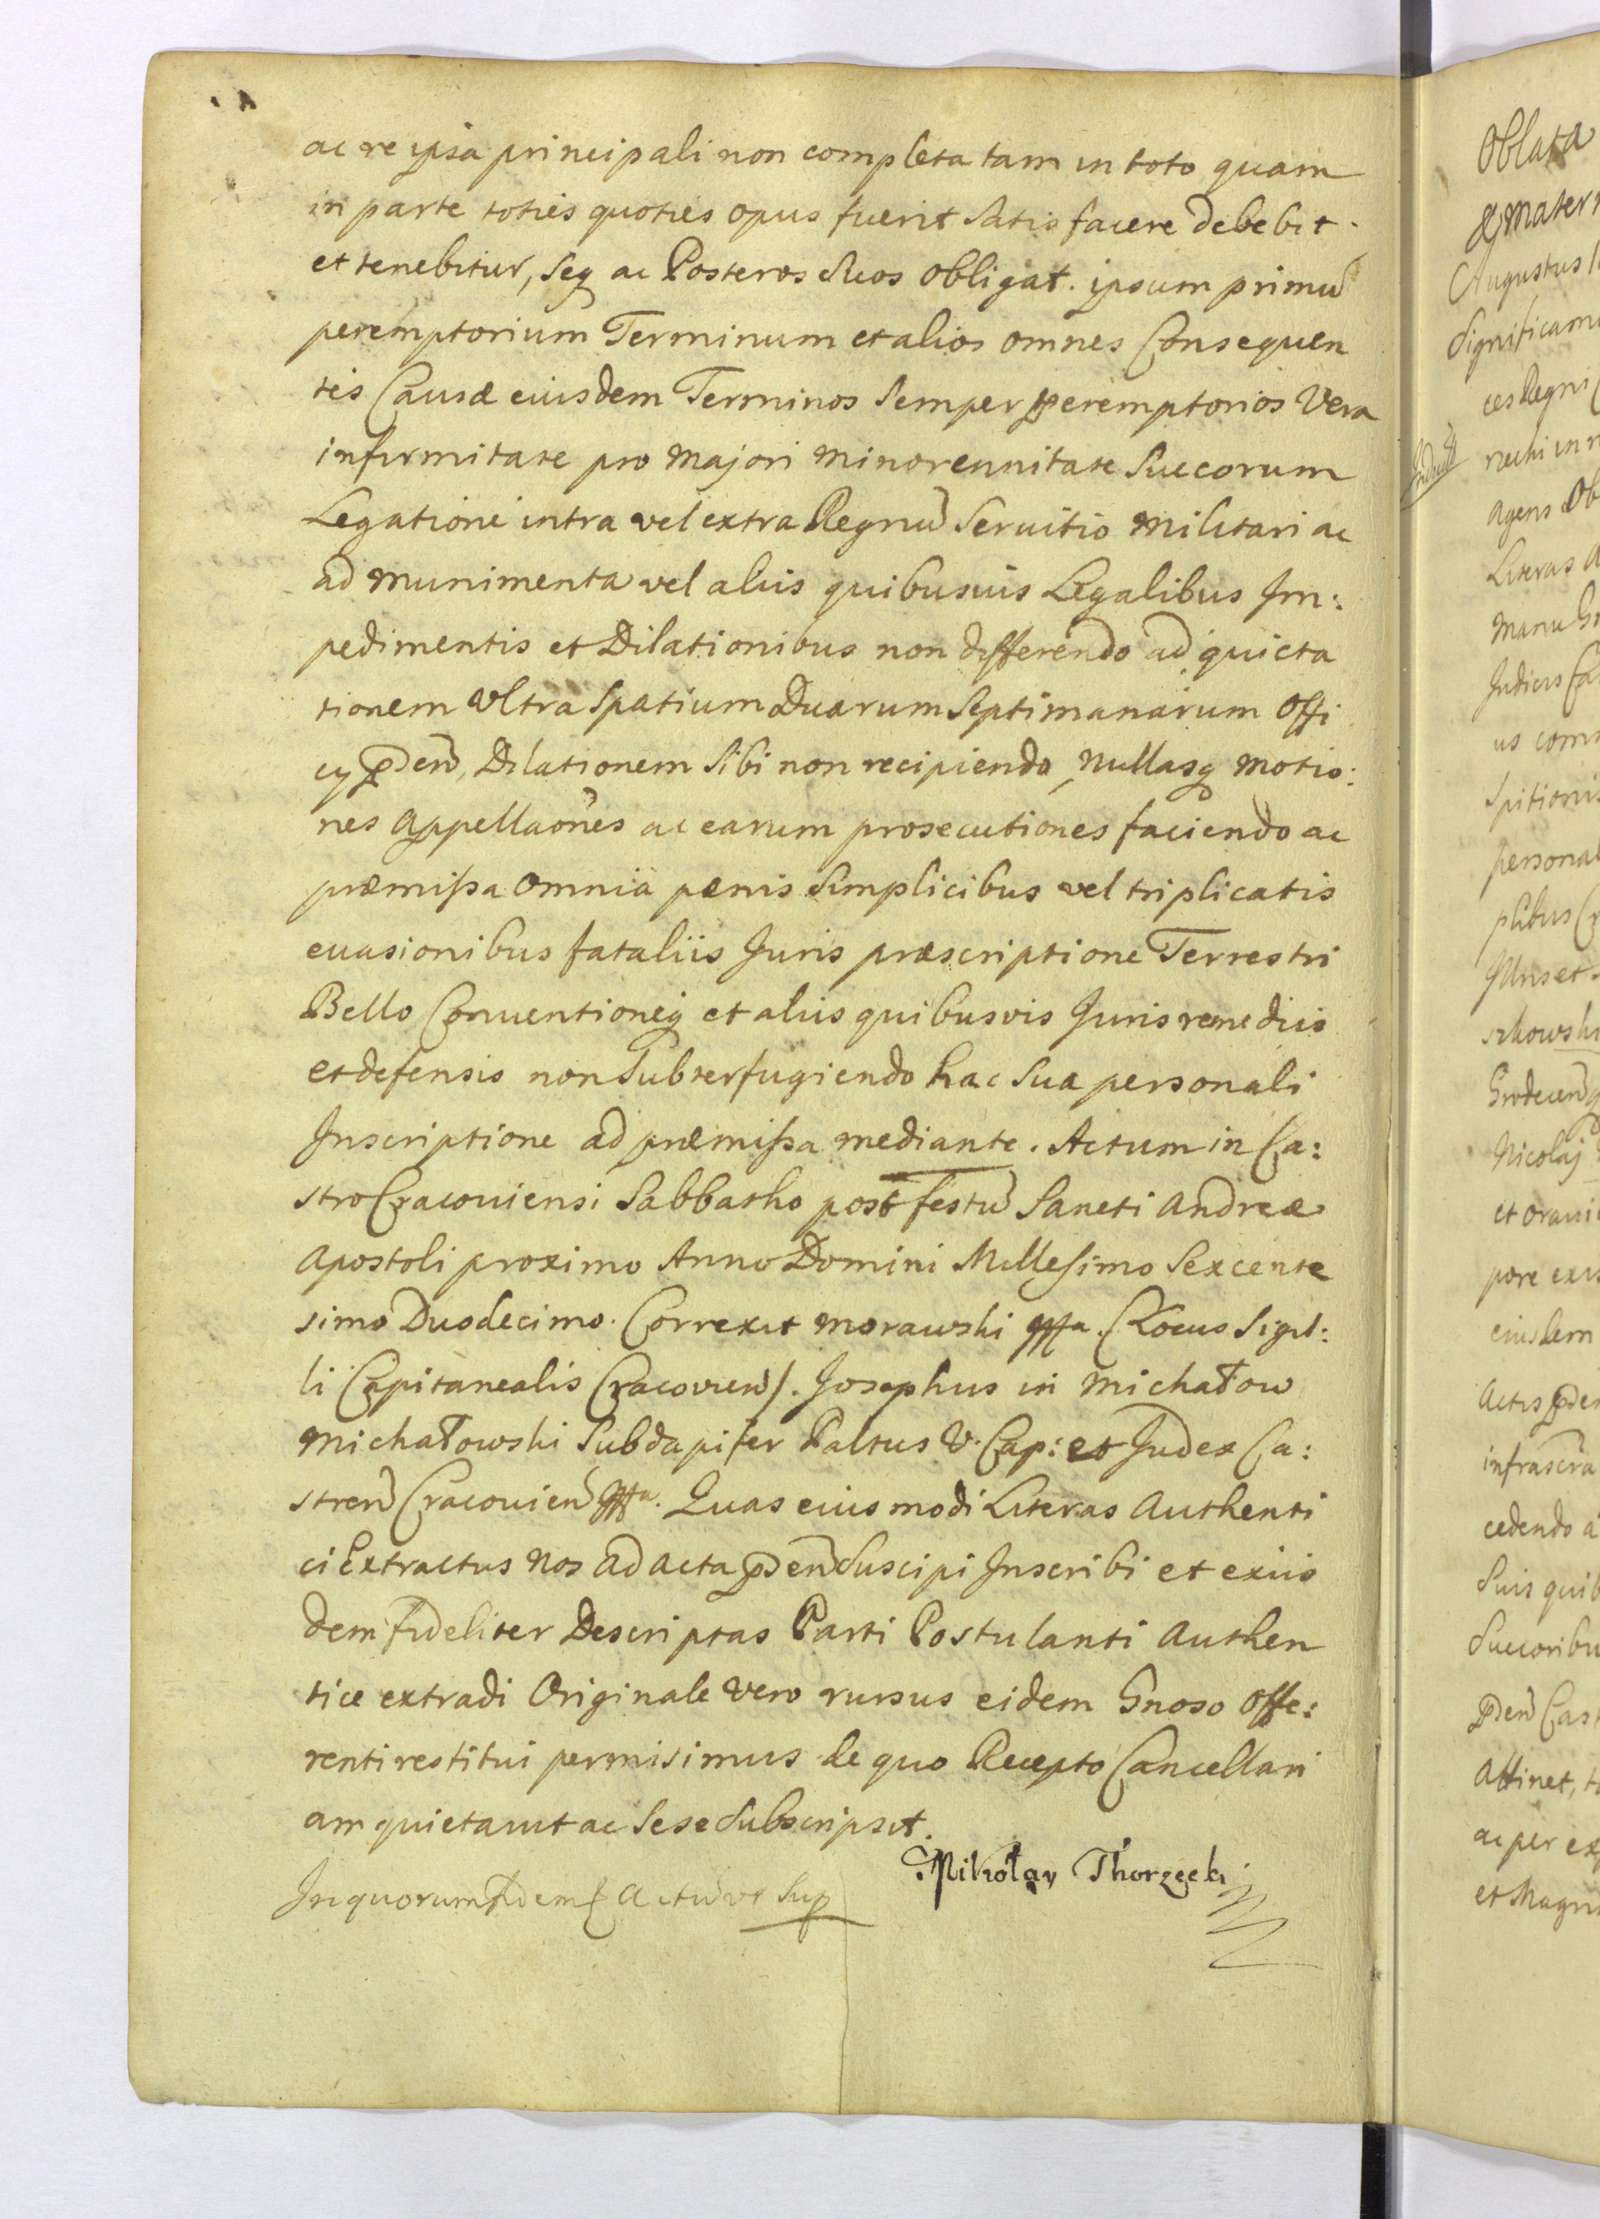 ac re ipsa principali non completa tam in toto quam
in parte toties quoties opus fuerit Satis facere debebit.
et tenebitur, seq ac Posteros Suos obligat. ipsum primū
peremptorium Terminum et alios omnes Consequen
tis Causæ eiusdem Terminos Semper peremptorios Vera
infirmitate pro Majori minorennitate Succorum
Legatione intra vel extra Regnū Seruitio Militari ac
ad munimenta vel aliis quibusuis Legalibus Im:
pedimentis et Dilationibus non differendo ad quieta
tionem Ultra Spatium Duarum Septimanarum Offi
cy pden, Dilationem Sibi non recipiendo, Nullasq motio:
nes Appellaōnes ac earum prosecutiones faciendo ac
præmissa omnia pænis Simplicibus vel triplicatis
euasionibus fataliis Juris præscriptione Terrestri
Bello Conuentioneq et aliis quibusvis Juris remediis
et defensis non Subterfugiendo hac Sua personali
Inscriptione ad præmissa mediante. Actum in Ca:
stro Cracouiensi Sabbatho post festū Sancti Andreæ
Apostoli proximo Anno Domini Millesimo Sexcente
simo Duodecimo. Correxit Morawski mppa. (Locus Sigil:
li Capitanealis Cracovien). Josephus in Michałow
Michałowski Subdapifer Paltus V. Cap: et Judex Ca:
stren Cracouien mppa. Quas eiusmodi Literas Authenti
ci Extractus Nos ad Acta pden Suscipi Inscribi et exiis
dem fideliter Descriptas Parti Postulanti Authen
tice extradi Originale vero rursus eidem Gnoso Offe:
renti restitui permisimus de quo Recepto Cancellari
am quietauit ac Sese Subscripsit.
Mikołay Thorzecki
In quorum fidem Actū vt Sup
Oblata
Augustus
Significam
ces Regni
Agens Ob
Literas
Manu
us com
personal
Nicolaj
et
pore
Actis pden
infrascra
cedendo a
Suis quib
Succoribu
pden Cast
Attinet,
ac per ex
et Magni